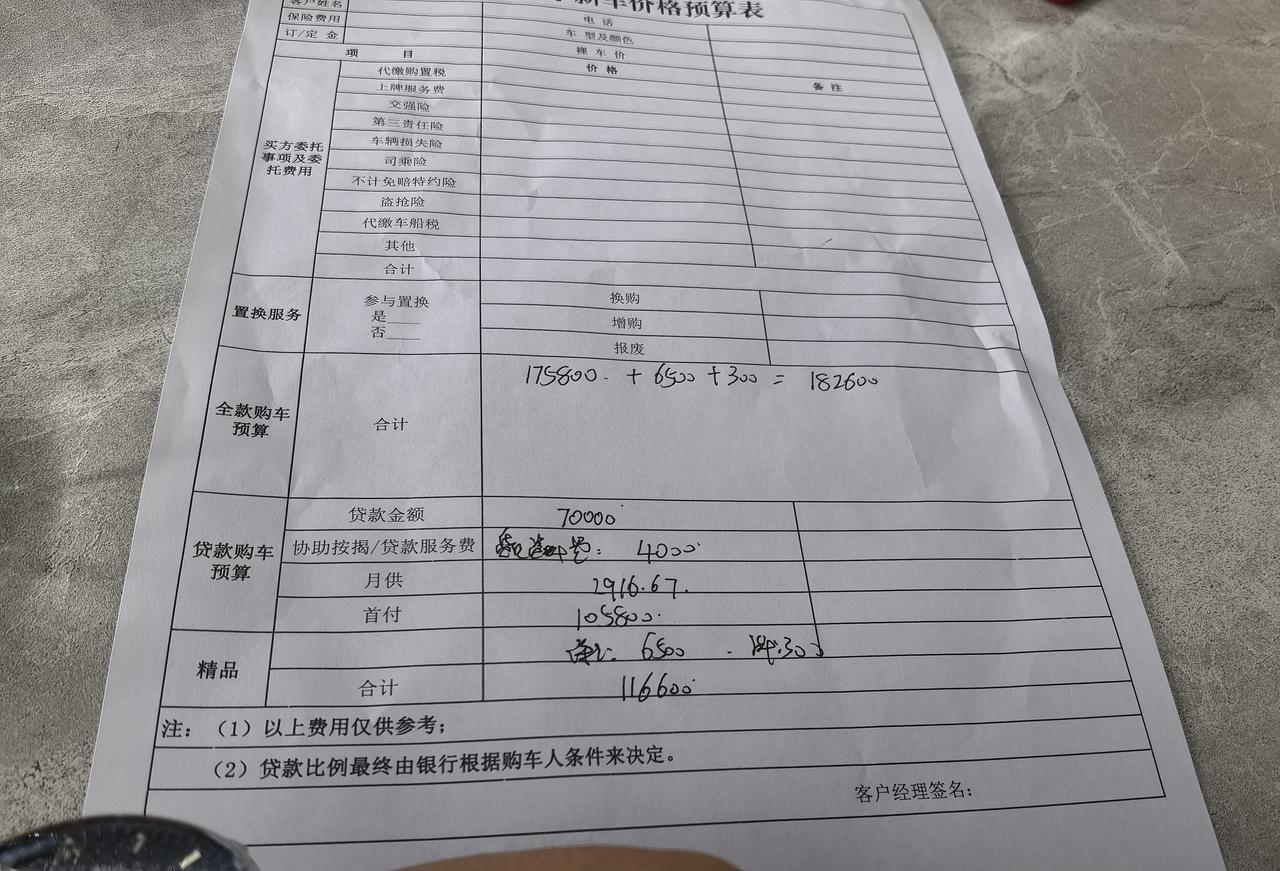 新车价格预算表
客户姓名 电 话
保险费用 车 型及颜色
订/定 金 裸 车 价
项 目 价 格 备 注
买方委托事项及委托费用
代缴购置税
上牌服务费
交强险
第三责任险
车辆损失险
司乘险
不计免赔特约险
盗抢险
代缴车船税
其他
合计
置换服务
参与置换
是____
否____
换购
增购
报废
全款购车预算
合计 175800. + 6500 + 300 = 182600
贷款购车预算
贷款金额 70000
协助按揭/贷款服务费 4000
月供 2916.67.
首付 105800.
精品
6500 300
合计 116600
注：（1）以上费用仅供参考；
（2）贷款比例最终由银行根据购车人条件来决定。
客户经理签名：